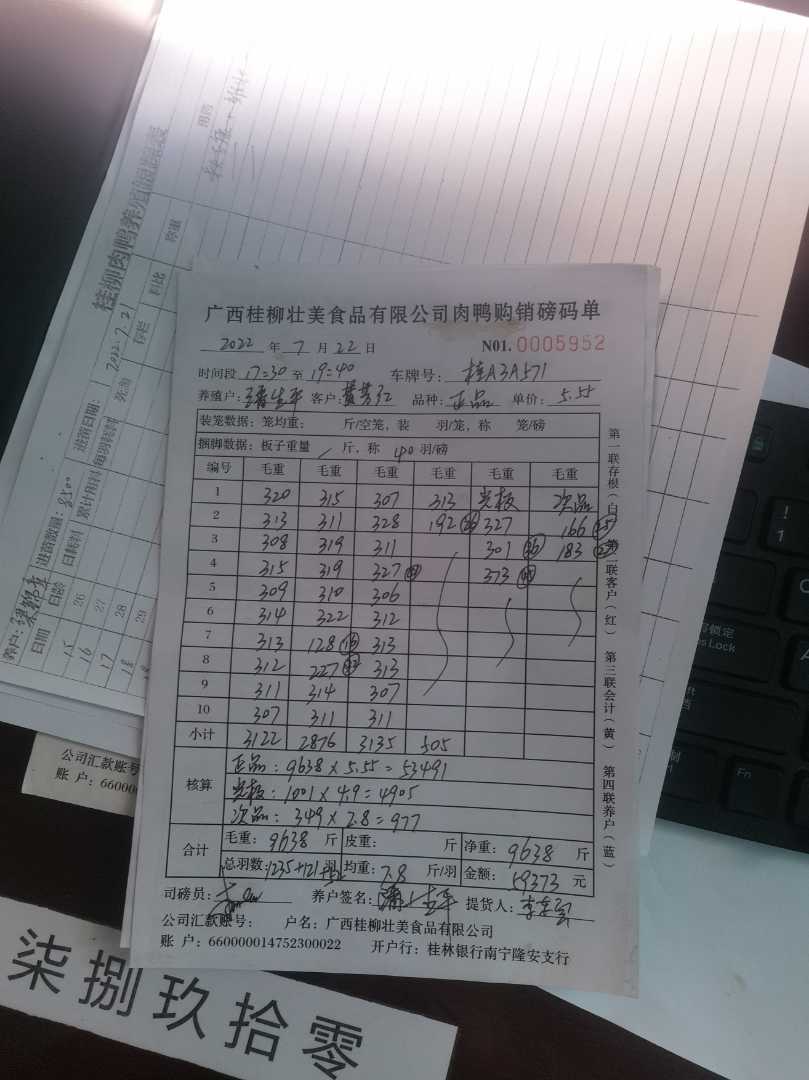 广西桂柳壮美食品有限公司肉鸭购销磅码单
2022 年 7 月 22 日 N01. 0005952
时间段 17:30 至 19:40 车牌号: 桂A3A571
养殖户: 客户: 品种: 正品 单价: 5.55
装笼数据: 笼均重: 斤/空笼, 装 羽/笼, 称 笼/磅
捆脚数据: 板子重量 / 斤, 称 40 羽/磅
编号 毛重 毛重 毛重 毛重 毛重 毛重
1 320 315 307 313 光板 次品
2 313 311 328 192 327 166
3 308 319 311 301 183
4 315 319 327 373
5 309 310 306
6 314 322 312
7 313 128 313
8 312 227 313
9 311 314 307
10 307 311 311
小计 3122 2876 3135 505
核算
正品: 9638 × 5.55 = 53491
光板: 1001 × 4.9 = 4905
次品: 349 × 2.8 = 977
合计
毛重: 9638 斤 皮重: 斤 净重: 9638 斤
总羽数: 1235+121+ 羽 均重: 7.8 斤/羽 金额: 59373 元
司磅员: 养户签名: 提货人:
公司汇款账号: 户名: 广西桂柳壮美食品有限公司
账 户: 660000014752300022 开户行: 桂林银行南宁隆安支行
第一联存根(白) 第二联客户(红) 第三联会计(黄) 第四联养户(蓝)
桂柳肉鸭养殖
用药
养户: 进苗数量: 8500 进苗日期: 2022.7.21
日期 日龄 日耗料 累计用料 每羽耗料 死淘 存栏 料比 称重
15 26
16 27
17 28
18 29
公司汇款账号
账 户: 66000
柒捌玖拾零
!
1
Fn